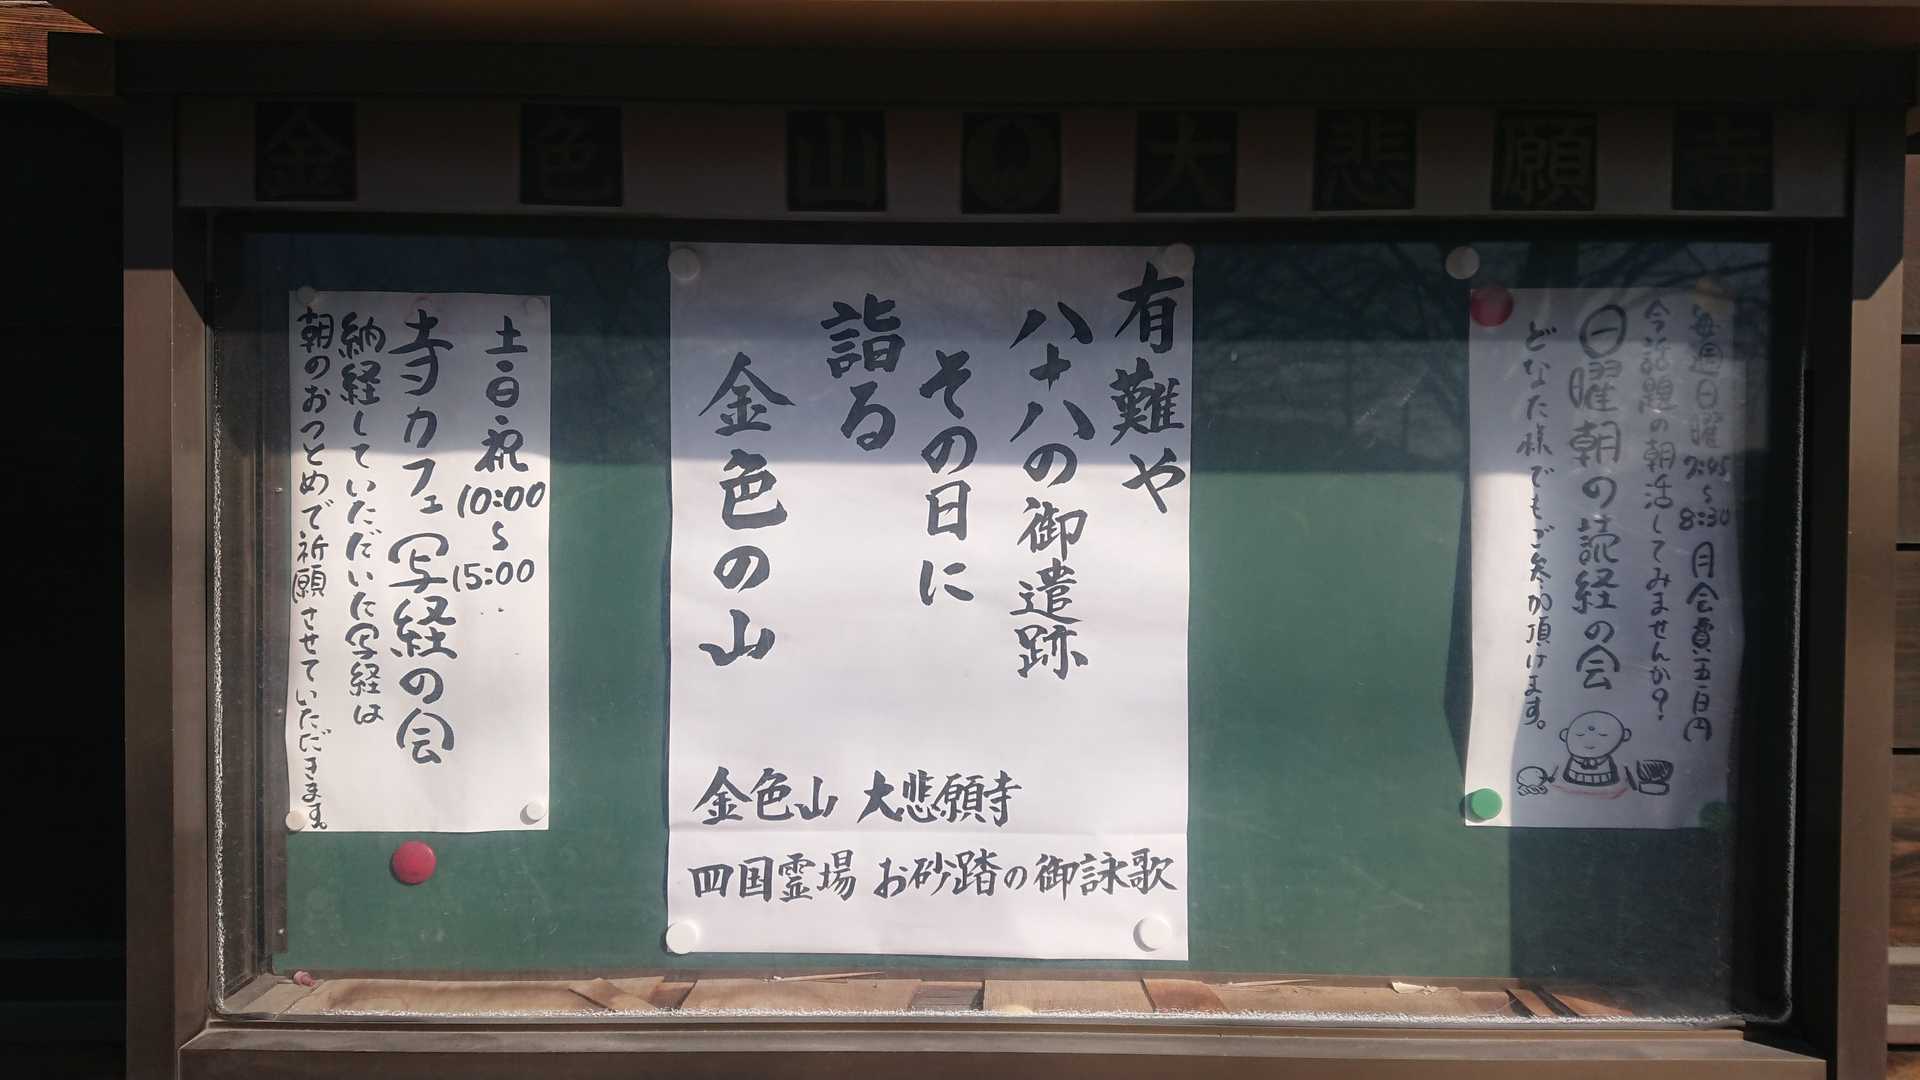 金色山大悲願寺
毎週日曜7:45～8:30 月会費五百円
今話題の朝活してみませんか?
日曜朝の読経の会
どなた様でもご参加頂けます。
有難や
八十八の御遺跡
その日に
詣る
金色の山
金色山 大悲願寺
四国霊場 お砂踏の御詠歌
土・日・祝 10:00～15:00
寺カフェ写経の会
納経していただいた写経は
朝のおつとめで祈願させていただきます。